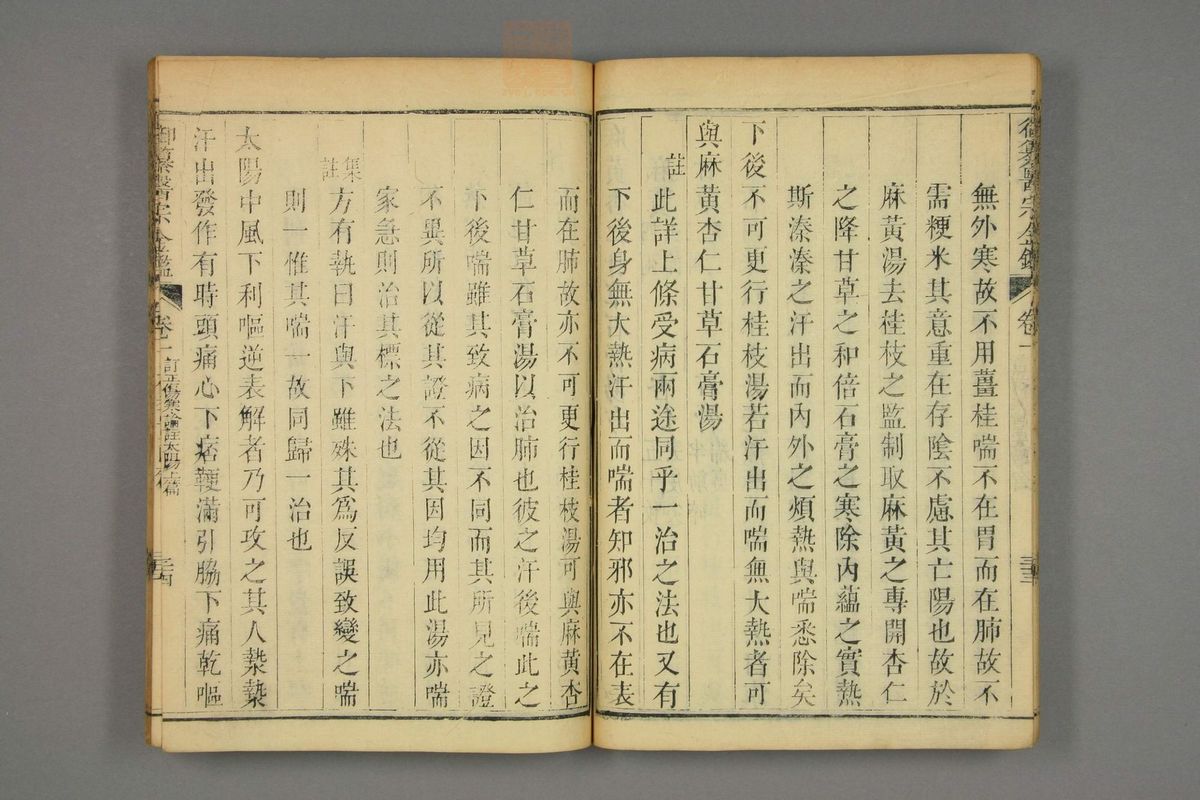 御纂醫宗金鑑 卷一 三十三
無外寒故不用薑桂喘不在胃而在肺故不
需粳米其意重在存陰不慮其亡陽也故於
麻黃湯去桂枝之監制取麻黃之專開杏仁
之降甘草之和倍石膏之寒除內蘊之實熱
斯溱溱之汗出而內外之煩熱與喘悉除矣
下後不可更行桂枝湯若汗出而喘無大熱者可
與麻黃杏仁甘草石膏湯
註此詳上條受病兩途同乎一治之法也又有
下後身無大熱汗出而喘者知邪亦不在表
而在肺故亦不可更行桂枝湯可與麻黃杏
仁甘草石膏湯以治肺也彼之汗後喘此之
下後喘雖其致病之因不同而其所見之證
不異所以從其證不從其因均用此湯亦喘
家急則治其標之法也
集註方有執曰汗與下雖殊其為反誤致變之喘
則一惟其喘一故同歸一治也
太陽中風下利嘔逆表解者乃可攻之其人漐漐
汗出發作有時頭痛心下痞鞕滿引脇下痛乾嘔
御纂醫宗金鑑 卷一 訂正傷寒論註太陽上篇 三十四